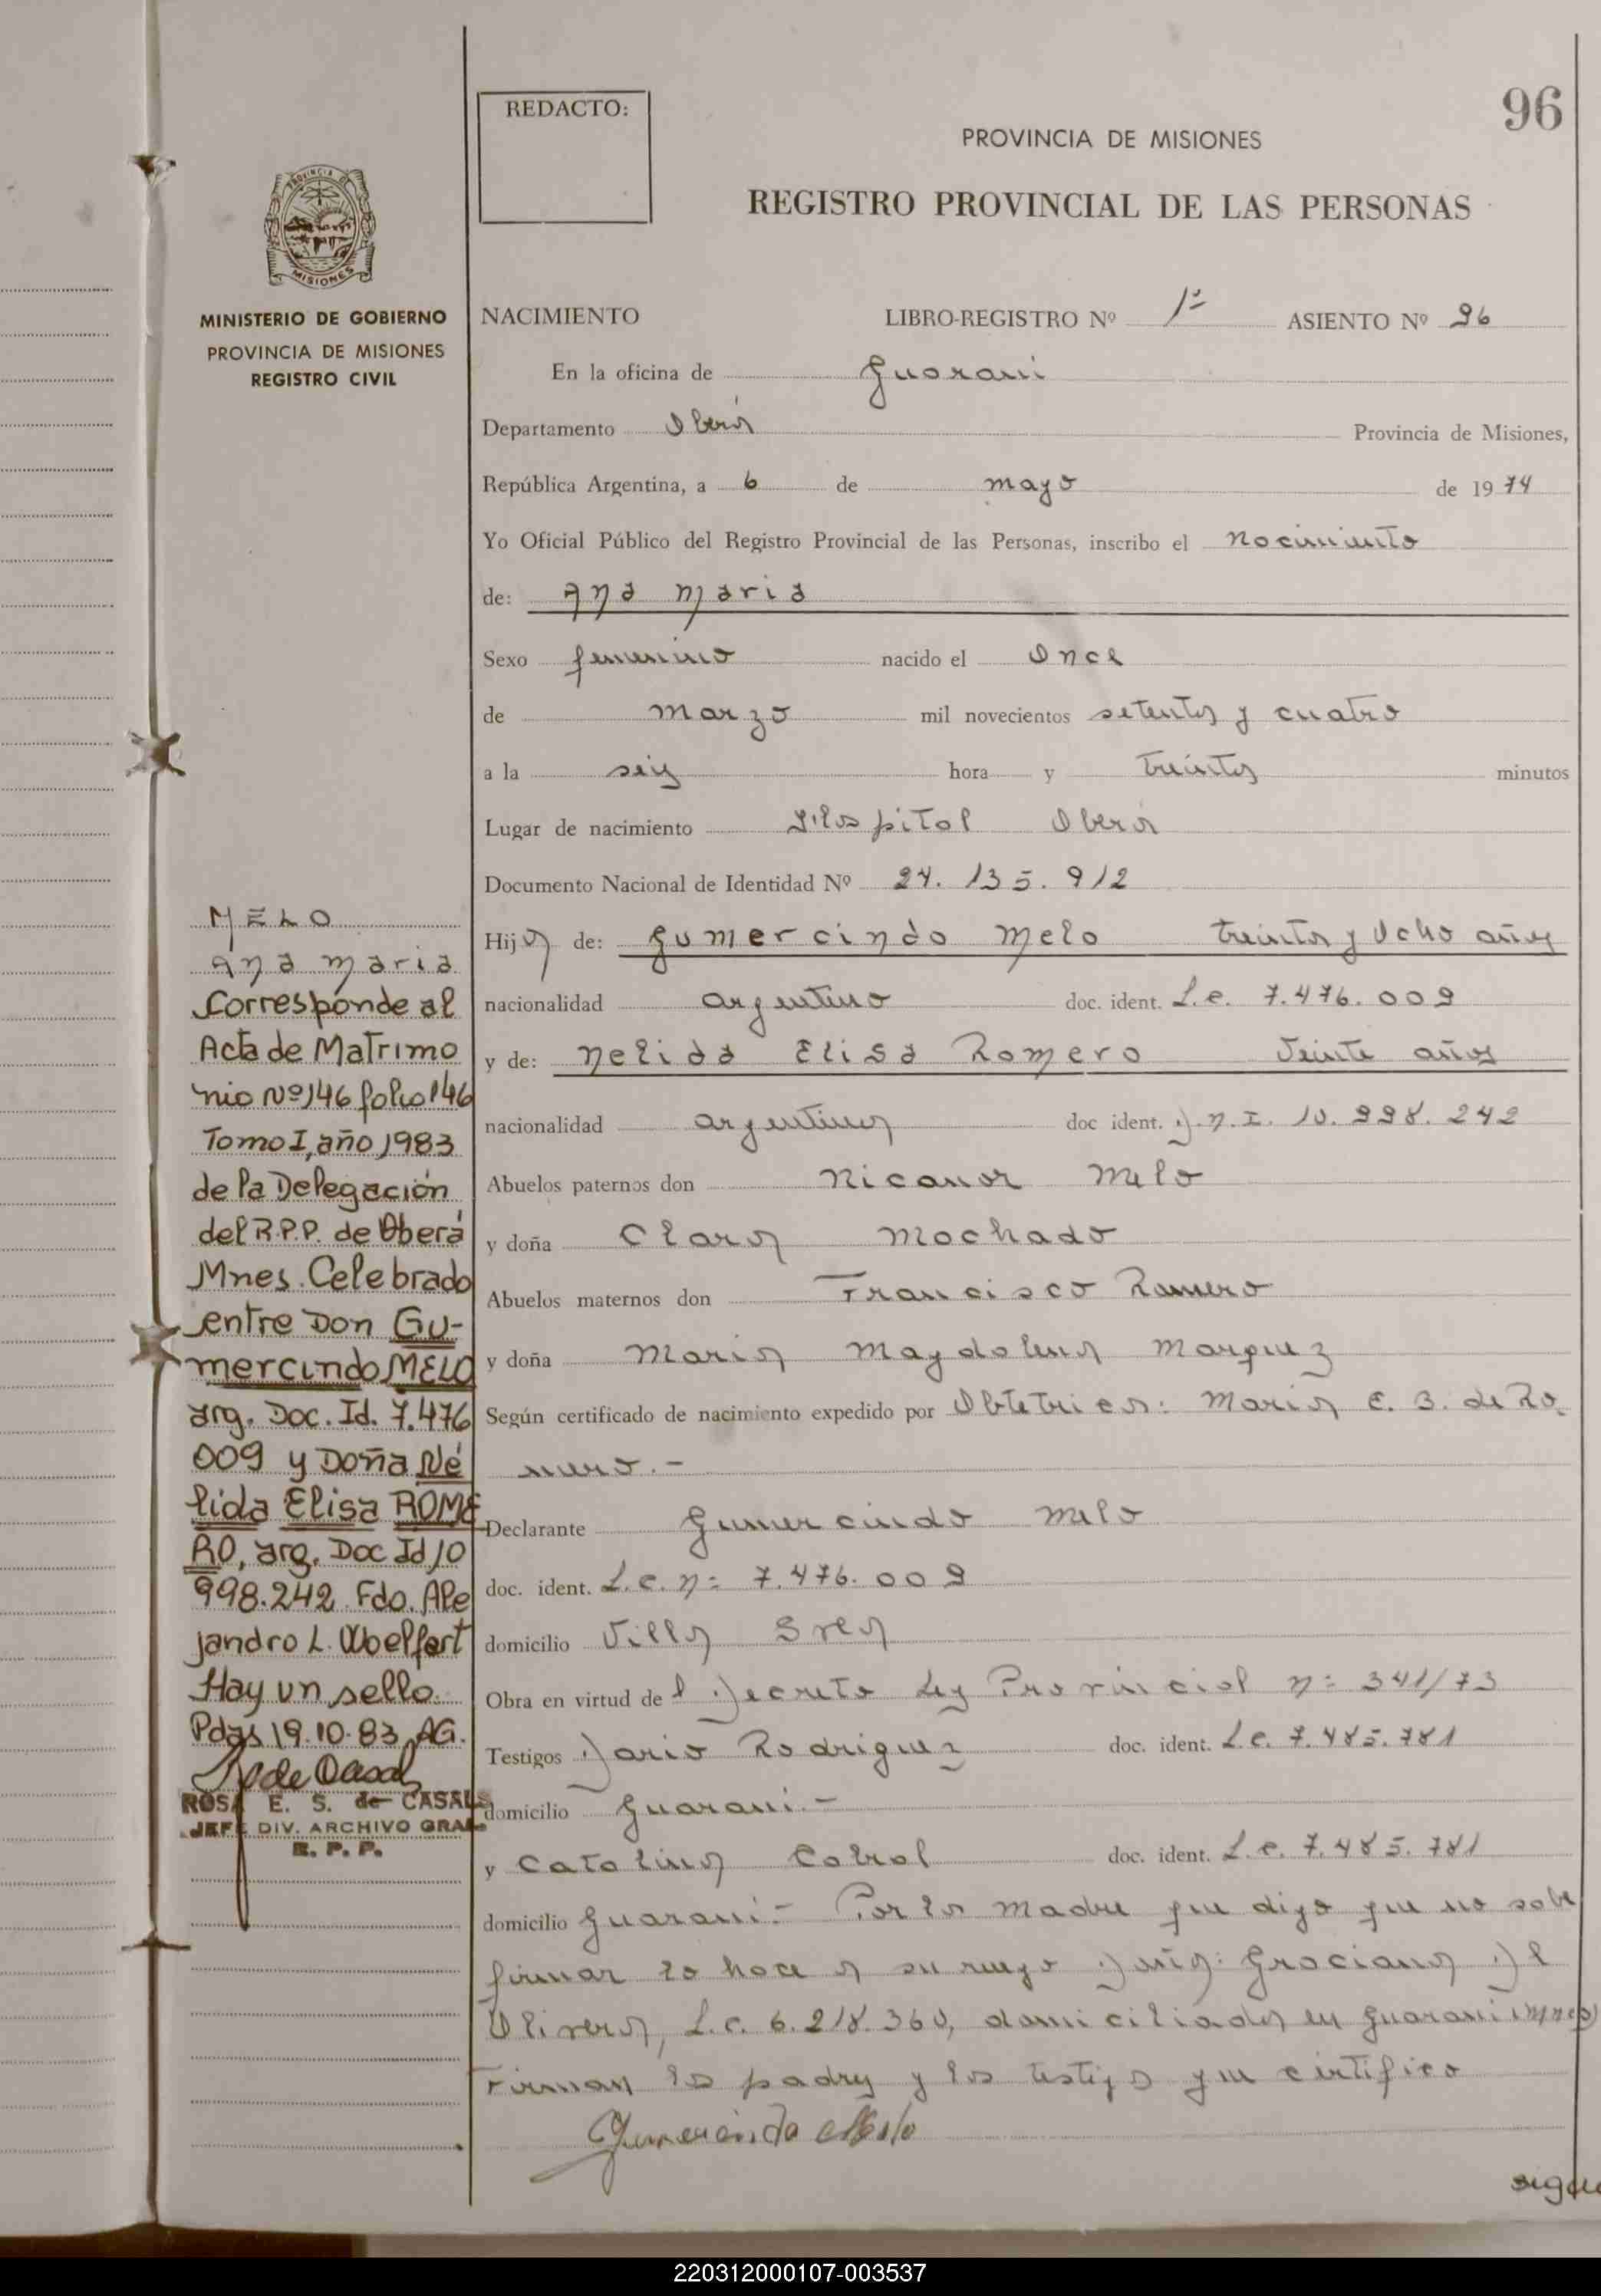 96
REDACTO:
PROVINCIA DE MISIONES
REGISTRO PROVINCIAL DE LAS PERSONAS
PROVINCIA DE
MISIONES
MINISTERIO DE GOBIERNO
PROVINCIA DE MISIONES
REGISTRO CIVIL
NACIMIENTO LIBRO-REGISTRO Nº 1º ASIENTO Nº 96
En la oficina de Guarani
Departamento Oberá Provincia de Misiones,
República Argentina, a 6 de mayo de 1974
Yo Oficial Público del Registro Provincial de las Personas, inscribo el nacimiento
de: Ana Maria
Sexo femenino nacido el once
de marzo mil novecientos setenta y cuatro
a la seis hora y treinta minutos
Lugar de nacimiento Hospital Oberá
Documento Nacional de Identidad Nº 24.135.912
Hija de: Gumercindo Melo treinta y ocho años
nacionalidad argentino doc. ident. L.e. 7.476.009
y de: Nelida Elisa Romero veinte años
nacionalidad argentina doc ident. D.N.I. 10.998.242
Abuelos paternos don Nicanor Melo
y doña Clara Machado
Abuelos maternos don Francisco Romero
y doña Maria Magdalena Marquez
Según certificado de nacimiento expedido por Obtetrica: Maria E. B. de Ro
mero.-
Declarante Gumercindo Melo
doc. ident. L.e. Nº 7.476.009
domicilio Villa
Obra en virtud del Decreto Ley Provincial Nº 341/73
Testigos Dario Rodriguez doc. ident. L.e. 7.485.781
domicilio Guarani.-
y Catalina Cabral doc. ident. L.e. 7.485.781
domicilio Guarani.- Por la madre que dijo que no sabe
firmar lo hace a su ruego Doña: Graciana D
Olivera, L.c. 6.218.360, domiciliada en Guarani Mnes
Firman los padres y los testigos que certifico
Gumercindo Melo
sigue
MELO
Ana Maria
Corresponde al
Acta de Matrimo
nio Nº 146 folio 146
Tomo I, año 1983
de la Delegación
del R.P.P. de Oberá
Mnes. Celebrado
entre Don Gu-
mercindo MELO
arg. Doc. Id. 7.476
009 y Doña Né
lida Elisa ROME
RO, arg. Doc Id 10
998.242. Fdo. Ale
jandro L. Woelfert
Hay un sello.
Pdas 19.10.83 AG.
ROSA E. S. de CASALS
JEFE DIV. ARCHIVO GRAL.
R. P. P.
220312000107-003537